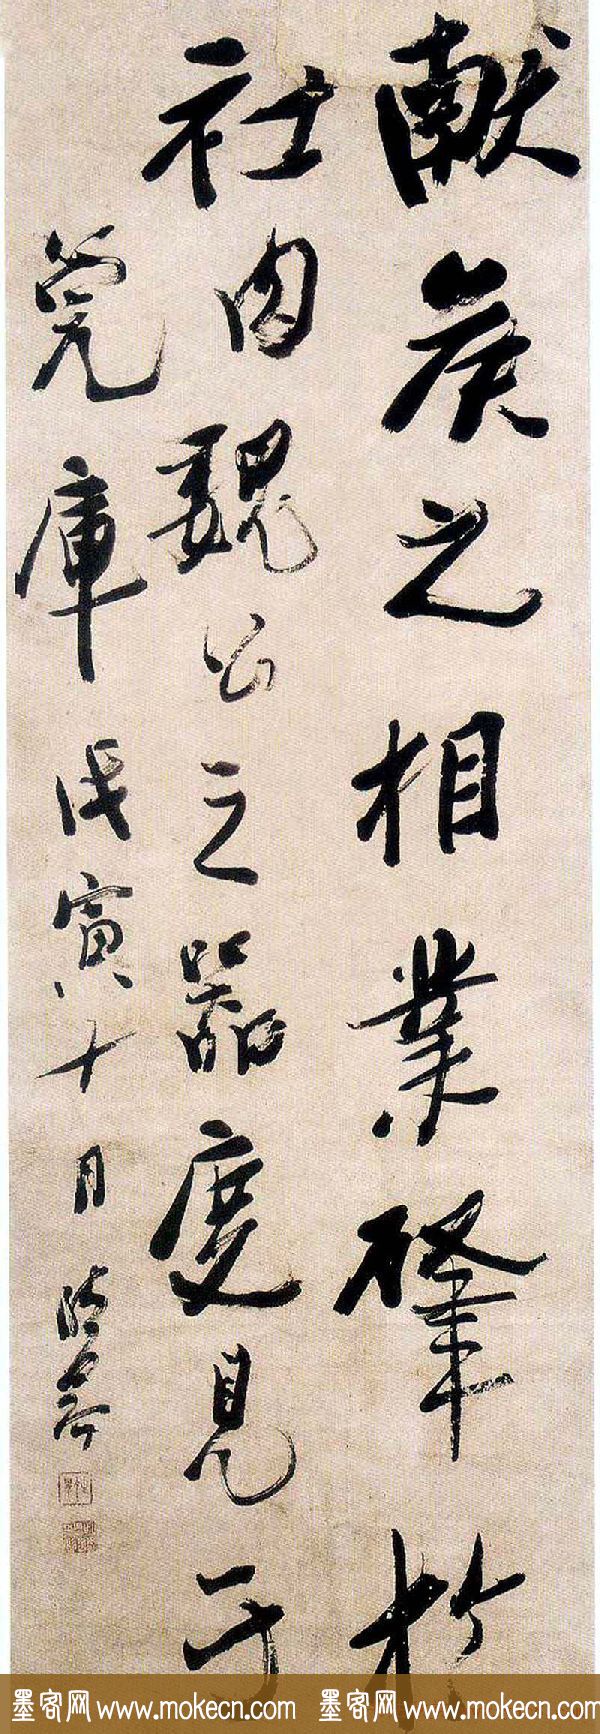 献侯之相業肇於
社肉魏公之器度見于
筦庫 戊寅十月
墨客网 www.mokecn.com 墨客网 www.mokecn.com